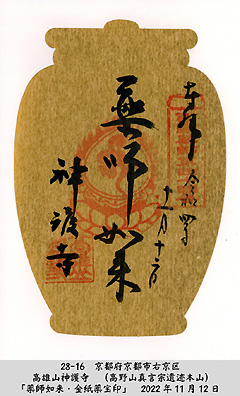 奉拝
令和四年
十一月十二日
薬師如来
神護寺
28-16 京都府京都市右京区
高雄山神護寺 (高野山真言宗遺迹本山)
「薬師如来・金紙薬壺印」 2022年11月12日